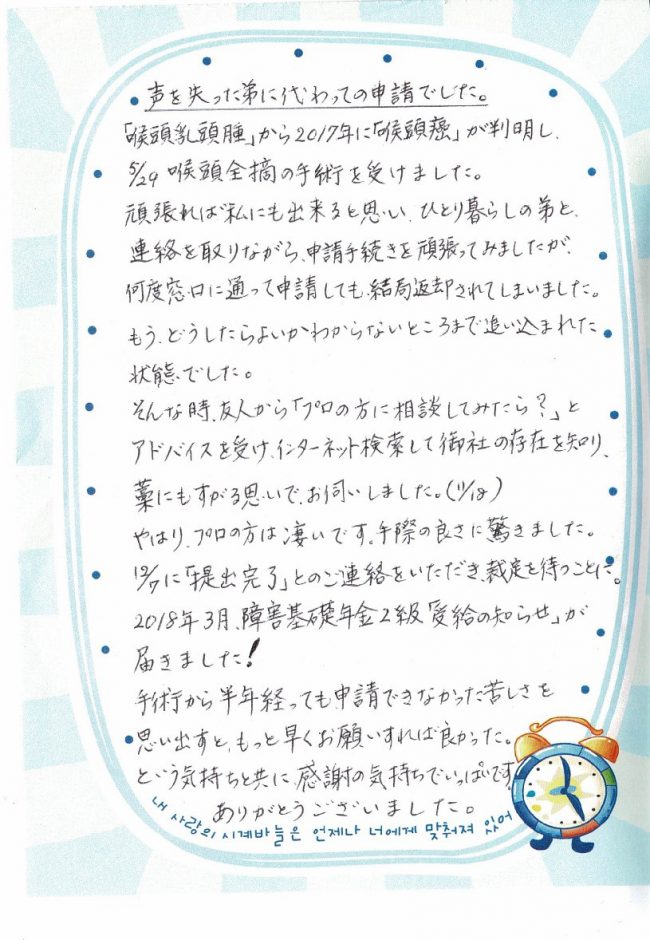 声を失った弟に代わっての申請でした。
「喉頭乳頭腫」から2017年に「喉頭癌」が判明し、
5/29 喉頭全摘の手術を受けました。
頑張れば私にも出来ると思い、ひとり暮らしの弟と、
連絡を取りながら、申請手続きを頑張ってみましたが、
何度窓口に通って申請しても、結局返却されてしまいました。
もう、どうしたらよいかわからないところまで追い込まれた
状態でした。
そんな時、友人から「プロの方に相談してみたら?」と
アドバイスを受け、インターネット検索して御社の存在を知り、
藁にもすがる思いで、お伺いしました。(11/18)
やはり、プロの方は凄いです。手際の良さに驚きました。
12/7に「提出完了」とのご連絡をいただき、裁定を待つことに。
2018年3月、障害基礎年金2級「受給の知らせ」が
届きました!
手術から半年経っても申請できなかった苦しさを
思い出すと、もっと早くお願いすれば良かった。
という気持ちと共に、感謝の気持ちでいっぱいです
ありがとうございました。
내 사랑의 시계바늘은 언제나 너에게 맞춰져 있어